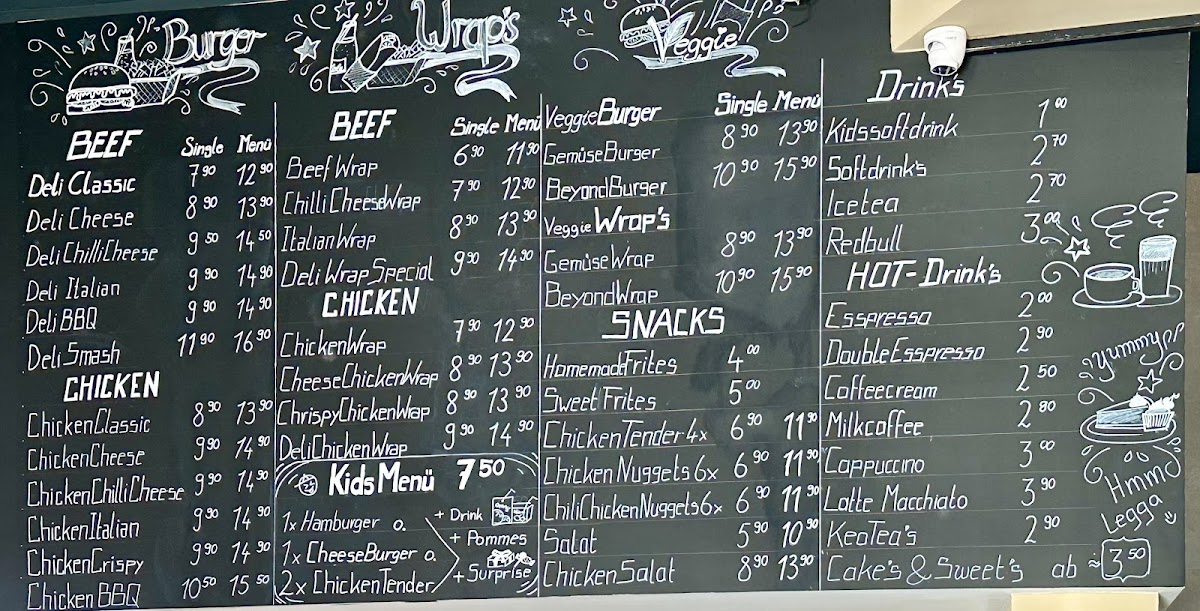 Burger
BEEF Single Menü
Deli Classic 7 90 12 90
Deli Cheese 8 90 13 90
Deli ChilliCheese 9 50 14 50
Deli Italian 9 90 14 90
Deli BBQ 9 90 14 90
Deli Smash 11 90 16 90
CHICKEN
ChickenClassic 8 90 13 90
ChickenCheese 9 90 14 90
ChickenChilliCheese 9 90 14 90
ChickenItalian 9 90 14 90
ChickenCrispy 9 90 14 90
Chicken BBQ 10 50 15 50
Wrap's
BEEF Single Menü
Beef Wrap 6 90 11 90
Chilli CheeseWrap 7 90 12 90
ItalianWrap 8 90 13 90
Deli Wrap Special 9 90 14 90
CHICKEN
ChickenWrap 7 90 12 90
CheeseChickenWrap 8 90 13 90
ChrispyChickenWrap 8 90 13 90
DeliChickenWrap 9 90 14 90
Kids Menü 7 50
1x Hamburger o.
1x CheeseBurger o.
2x ChickenTender
+ Drink
+ Pommes
+ Surprise
Veggie
VeggieBurger Single Menü
GemüseBurger 8 90 13 90
BeyondBurger 10 90 15 90
Veggie Wrap's
GemüseWrap 8 90 13 90
BeyondWrap 10 90 15 90
SNACKS
HomemadeFrites 4 00
Sweet Frites 5 00
ChickenTender 4x 6 90 11 90
Chicken Nuggets 6x 6 90 11 90
ChiliChickenNuggets 6x 6 90 11 90
Salat 5 90 10 90
Chicken Salat 8 90 13 90
Drink's
Kidssoftdrink 1 00
Softdrink's 2 70
Icetea 2 70
Redbull 3 00
HOT-Drink's
Esspresso 2 00
DoubleEsspresso 2 90
Coffeecream 2 50
Milkcoffee 2 80
Cappuccino 3 00
Latte Macchiato 3 90
KeoTea's 2 90
Cake's & Sweet's ab ≈ 3 50
yummypp
Hmmm
Legga